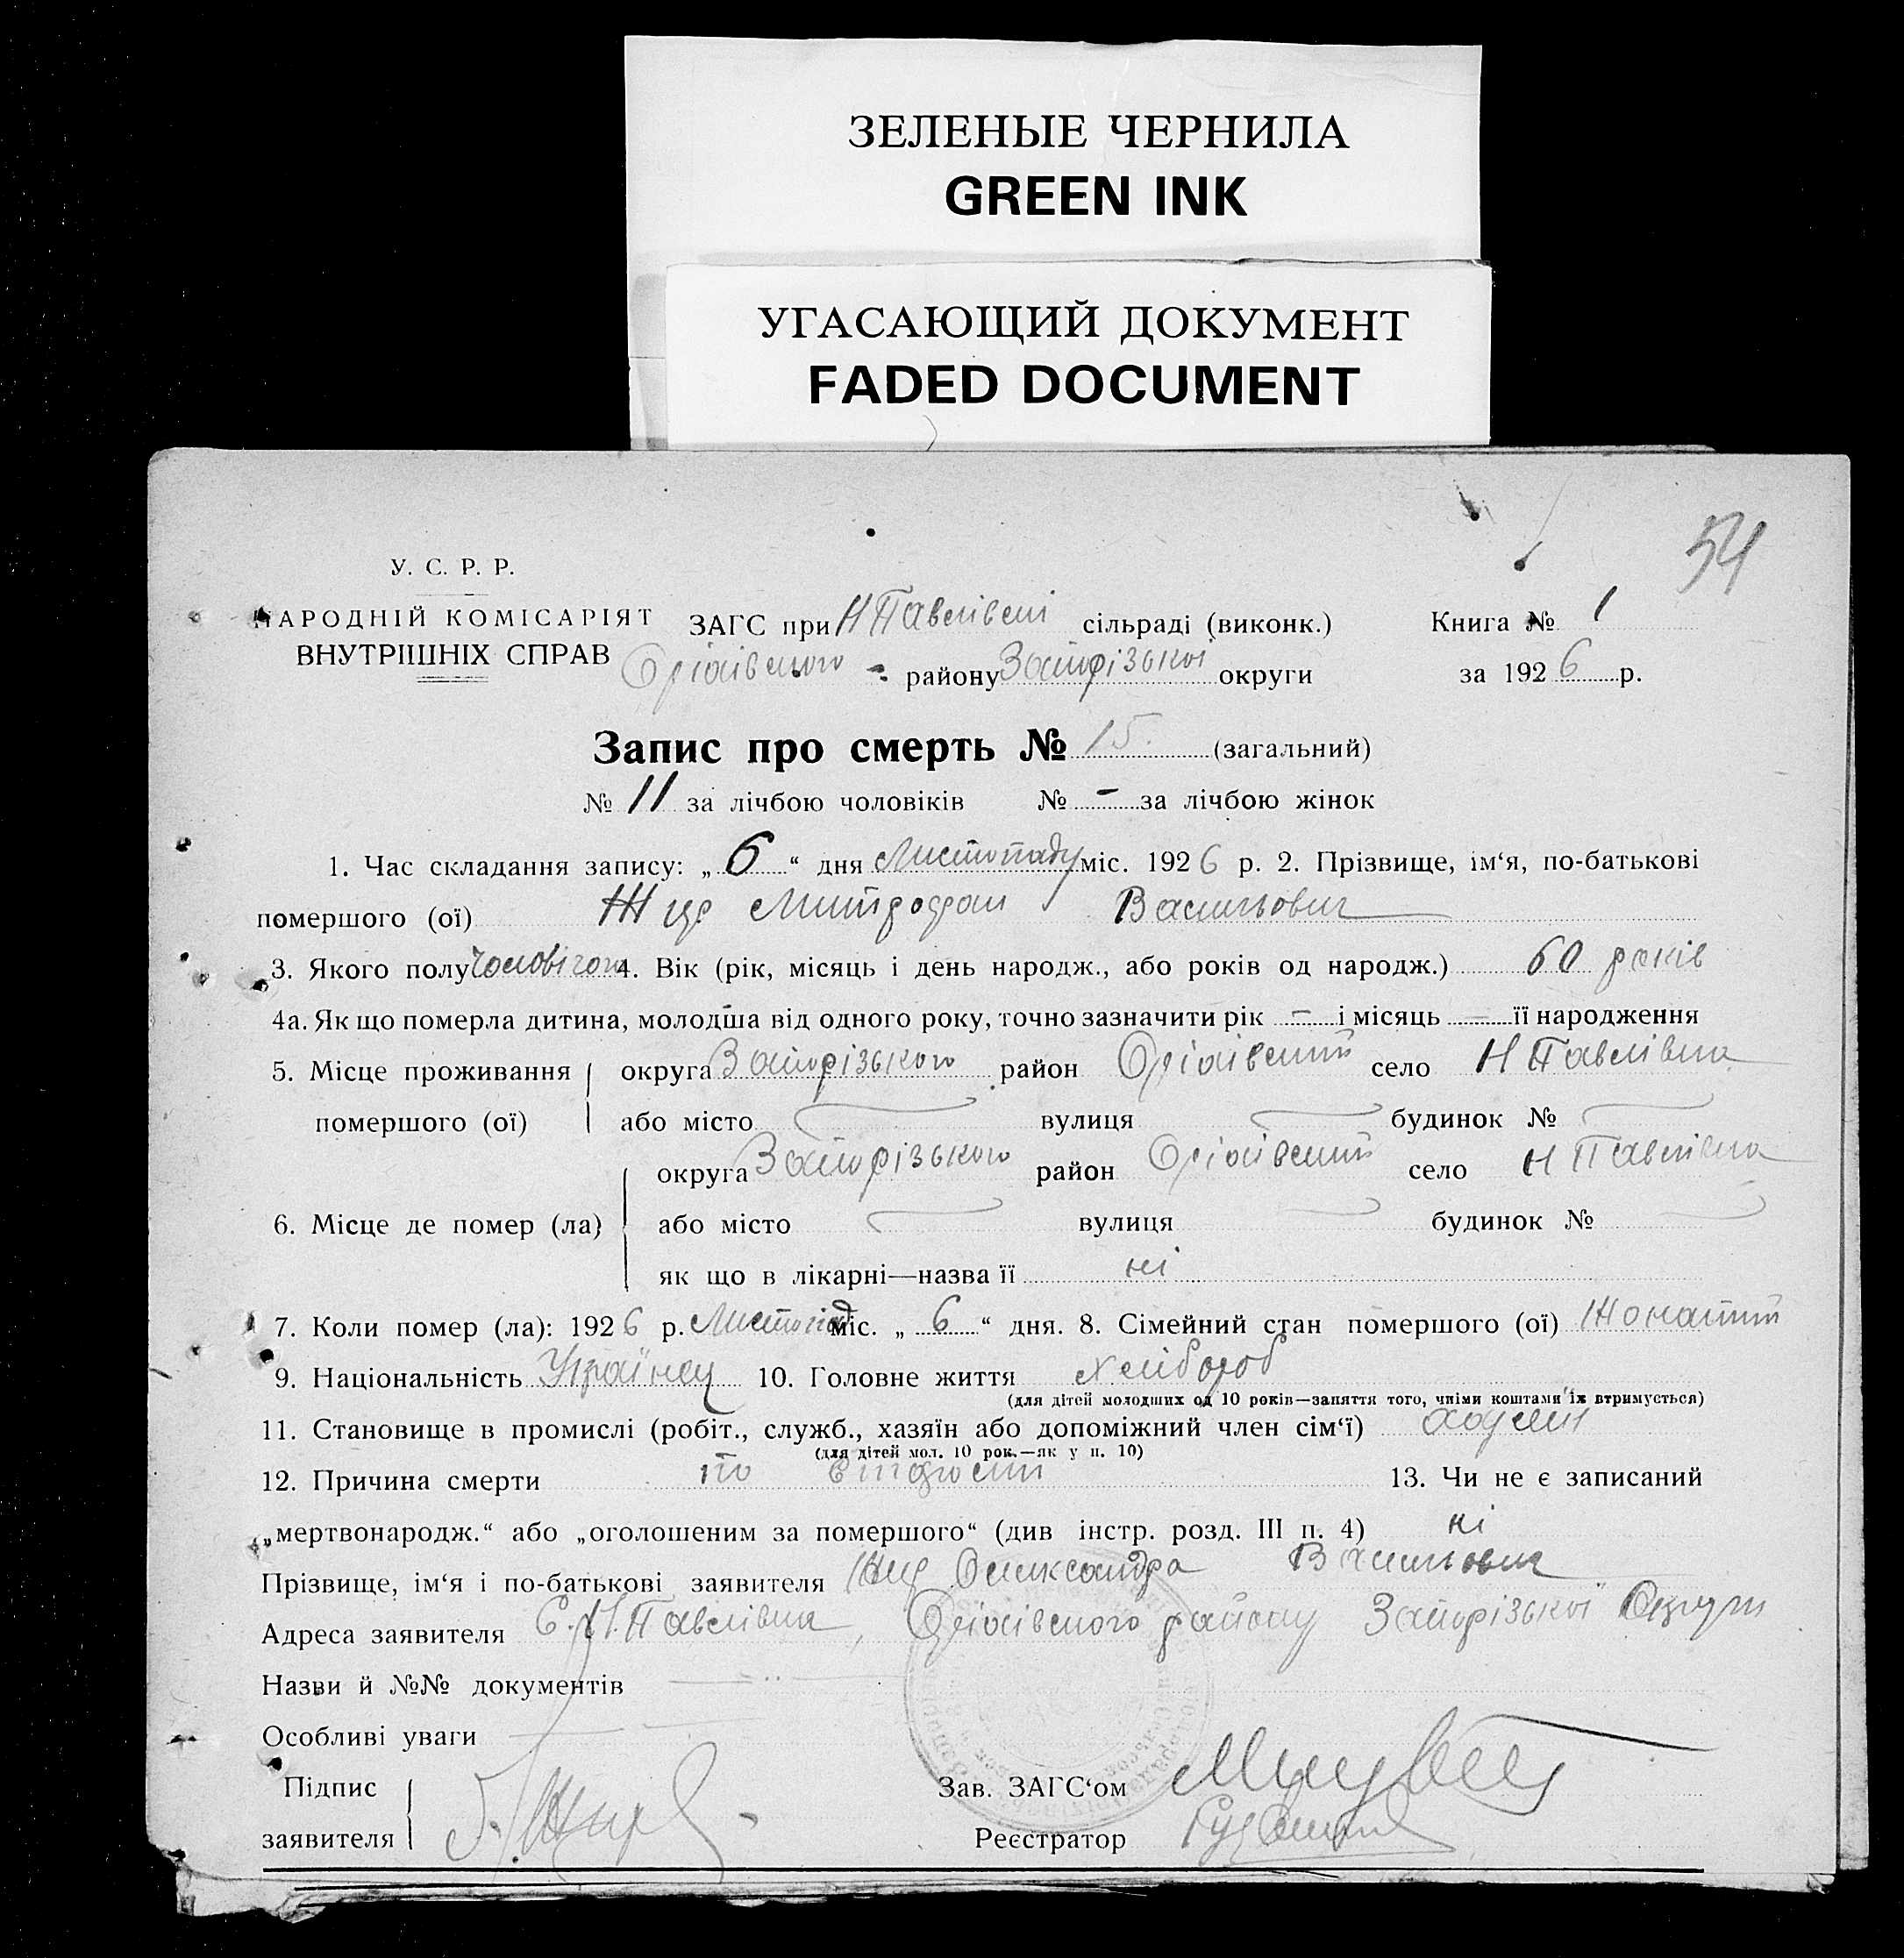 ЗЕЛЕНЫЕ ЧЕРНИЛА
GREEN INK
УГАСАЮЩИЙ ДОКУМЕНТ
FADED DOCUMENT
54
У. С. Р. Р.
НАРОДНІЙ КОМІСАРІЯТ
ВНУТРІШНІХ СПРАВ
ЗАГС при Н Павлівські сільраді (виконк.) Книга № 1
району Запорізької округи за 1926 р.
Запис про смерть № 15. (загальний)
№ 11 за лічбою чоловіків № - за лічбою жінок
1. Час складання запису: „6“ дня Листопаду міс. 1926 р. 2. Прізвище, ім‘я, по-батькові
помершого (ої) Митрофан Васильович
3. Якого полу чоловічого 4. Вік (рік, місяць і день народж., або років од народж.) 60 років
4а. Як що померла дитина, молодша від одного року, точно зазначити рік — і місяць — її народження
5. Місце проживання округа Запорізького район село Н Павлівка
помершого (ої) або місто вулиця будинок №
округа Запорізького район село Н Павлівка
6. Місце де помер (ла) або місто вулиця будинок №
як що в лікарні—назва її ні
7. Коли помер (ла): 1926 р. Листопад міс. „6“ дня. 8. Сімейний стан помершого (ої) Жонатий
9. Національність Українец 10. Головне життя хлібороб
(для дітей молодших од 10 років—заняття того, чиїми коштами їх втримується)
11. Становище в промислі (робіт., служб., хазяїн або допоміжний член сім‘ї)
(для дітей мол. 10 рок.—як у п. 10)
12. Причина смерти по 13. Чи не є записаний
„мертвонародж.“ або „оголошеним за помершого“ (див інстр. розд. III п. 4) ні
Прізвище, ім‘я і по-батькові заявителя Олександра Васильович
Адреса заявителя С. Н. Павлівка, району Запорізької Округи
Назви й №№ документів
Особливі уваги
Підпис
заявителя
Зав. ЗАГС‘ом
Реєстратор